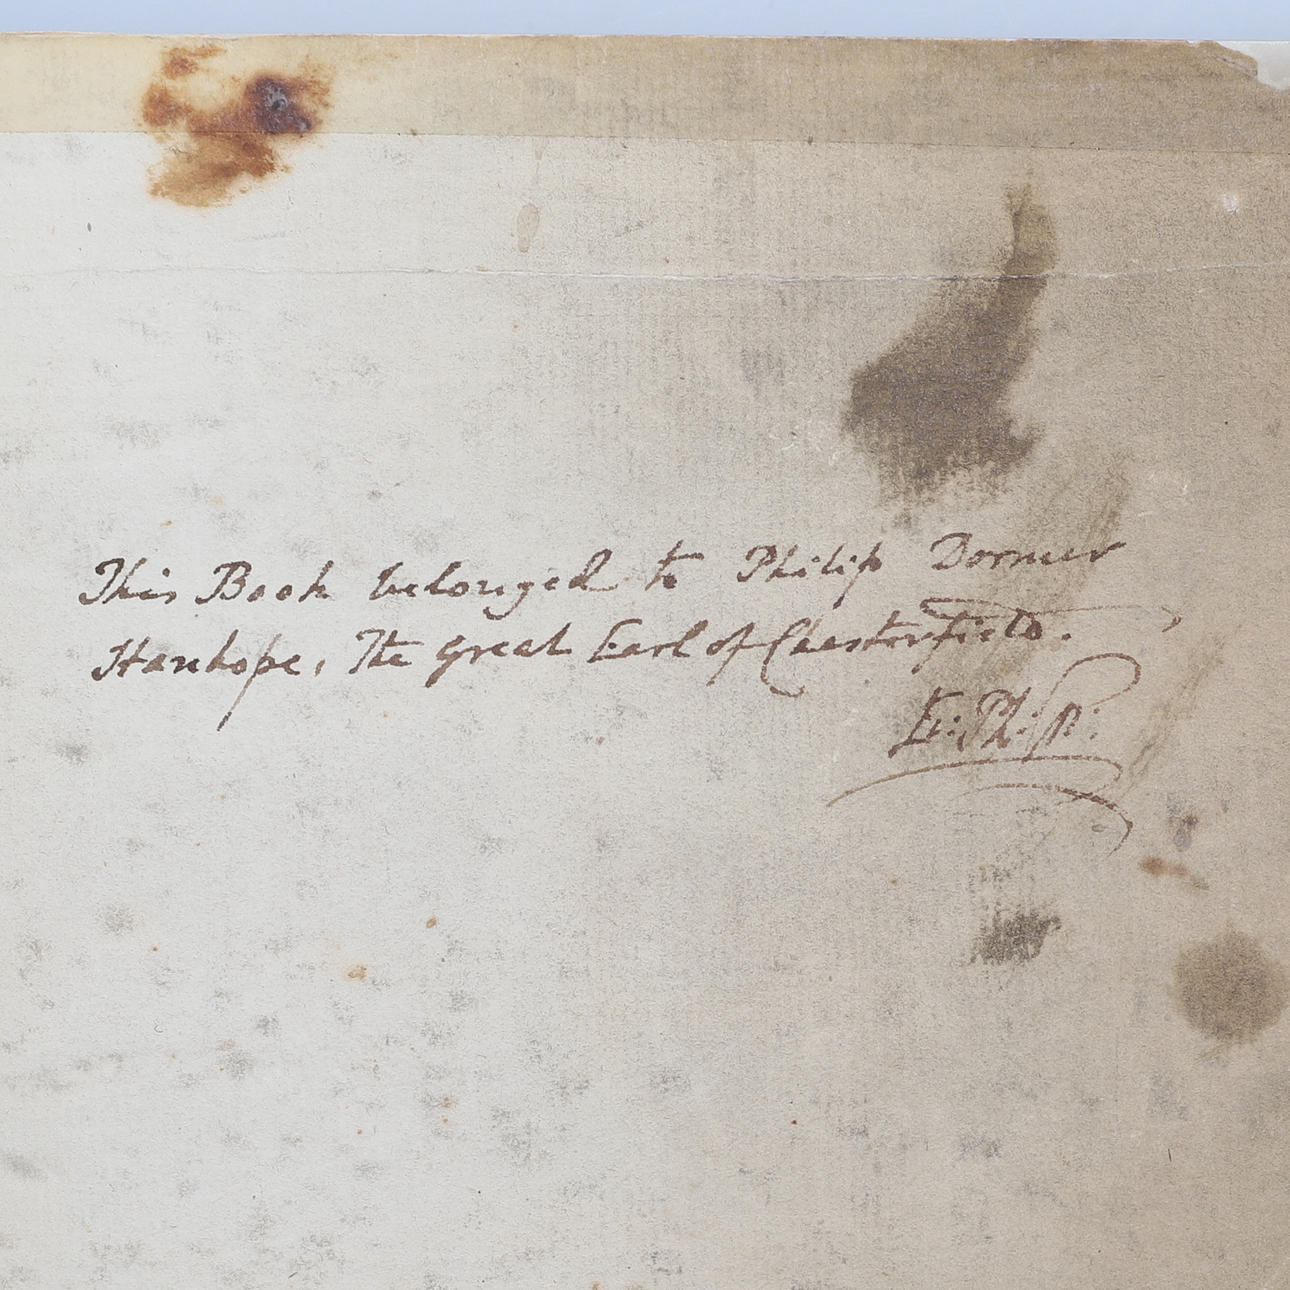 This Book belonged to Philip Dormer
Stanhope, The great Earl of Chesterfield.